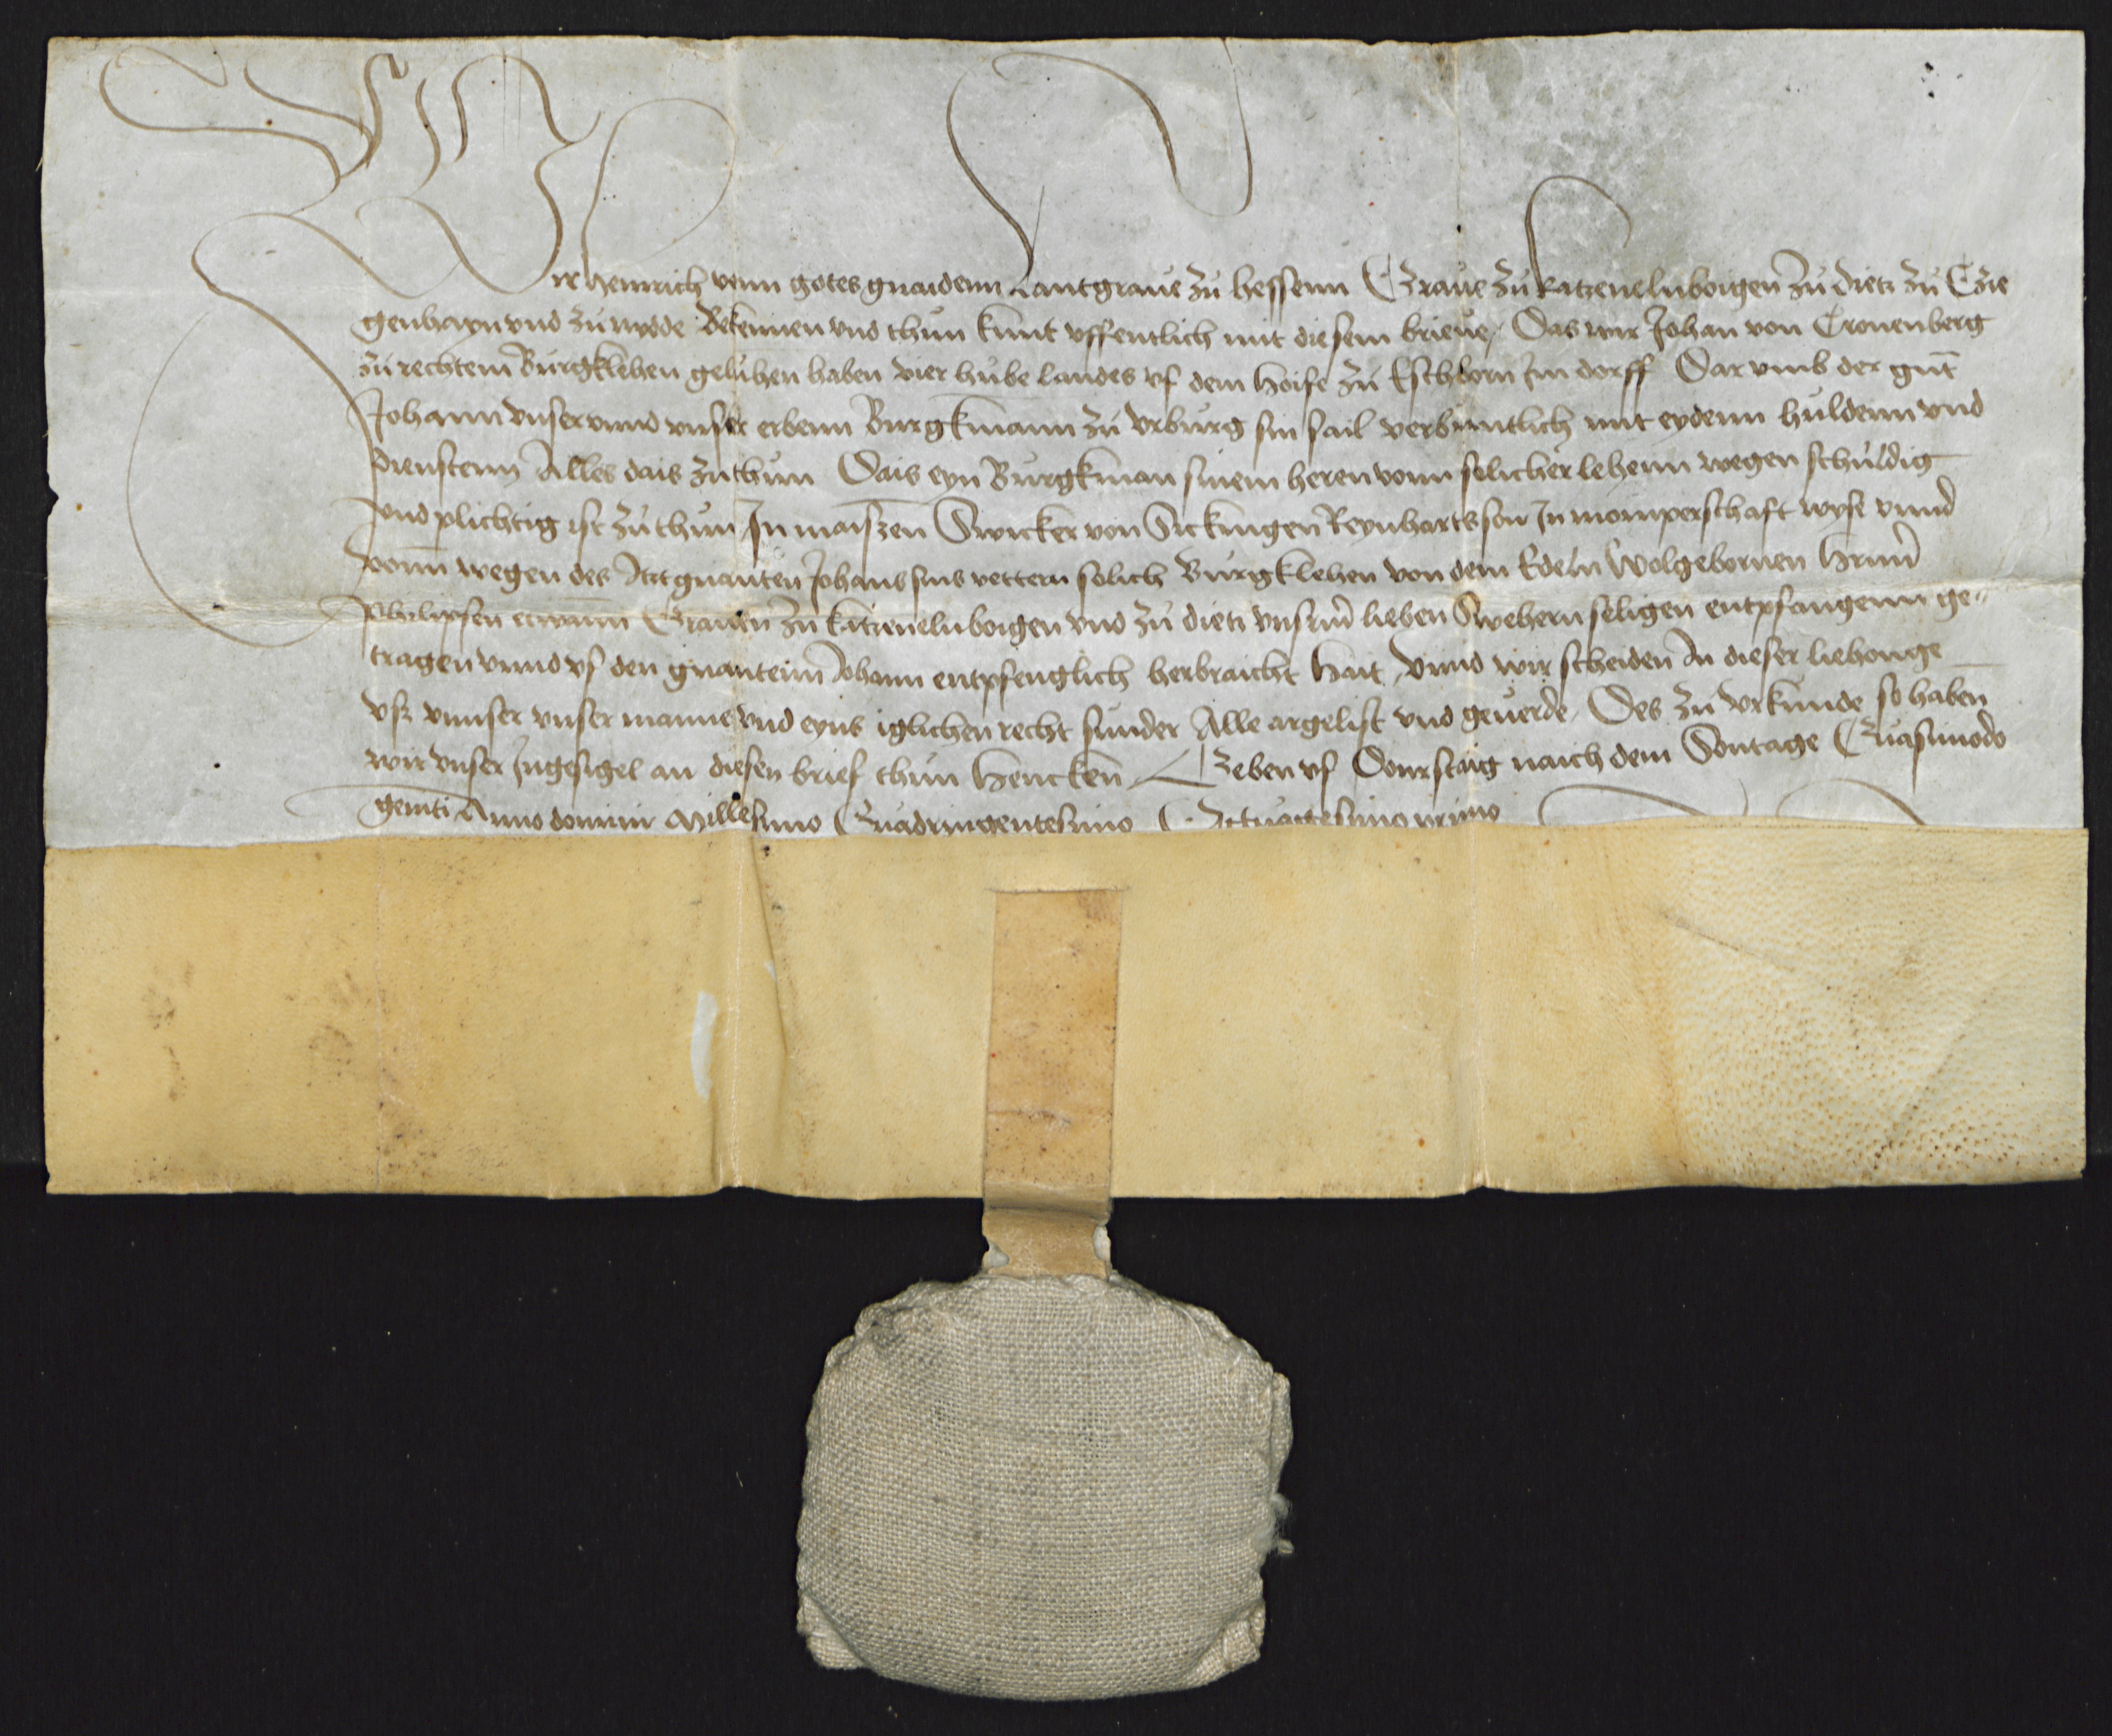 Wir Heinrich vonn gotes gnaidenn Lantgraue zů Hessenn Graue zů katzenelnboigen zů dietz zů Czie
genhayn vnd zů nydde Bekennen vnd thůn kunt vffentlich mit diesem brieue, Das wir Johan von Cronenberg
zů rechtem Bůrgklehen gelůhen haben vier hůbe landes vf dem hoife zů Eschborn Jm dorff Dar vmb der gn̄t
Johann vnser vnnd vnser erbenn Burgkmann zů vrbůrg sin sail verbůntlich mit eydenn huldenn vnd
dienstenn Alles dais zuthun Dais eyn Bůrgkman sinem heren vonn solicher lehenn wegen schůldig
vnd plichtig ist zůthůn Jn maiszen Swicker von Sickingen Reynharts son Jn momperschaft wyse vnnd
vonn wegen des Itztgnanten Johans sins vettern solich Bůrgklehen von dem Edeln Wolgebornen hrnn
Philipsen etwann Grauen zů katzenelnboigen vnd zů dietz vnserm lieben Swehern seligen entpfangenn ge-
tragen vnnd vf den gnantenn Johann entpfenglich herbraicht hait, vnnd wir scheiden In dieser liehonge
vsz vnnser vnser manne vnd eyns iglichen recht sunder Alle argelist vnd geuerde, Des zů vrkunde so haben
wir vnser Jngesigel an diesen brief thůn hencken, Geben vf Donrstaig naich dem Sontage Quasimodo
geniti Anno domini Millesimo Quadringentesimo Octuagesimo primo